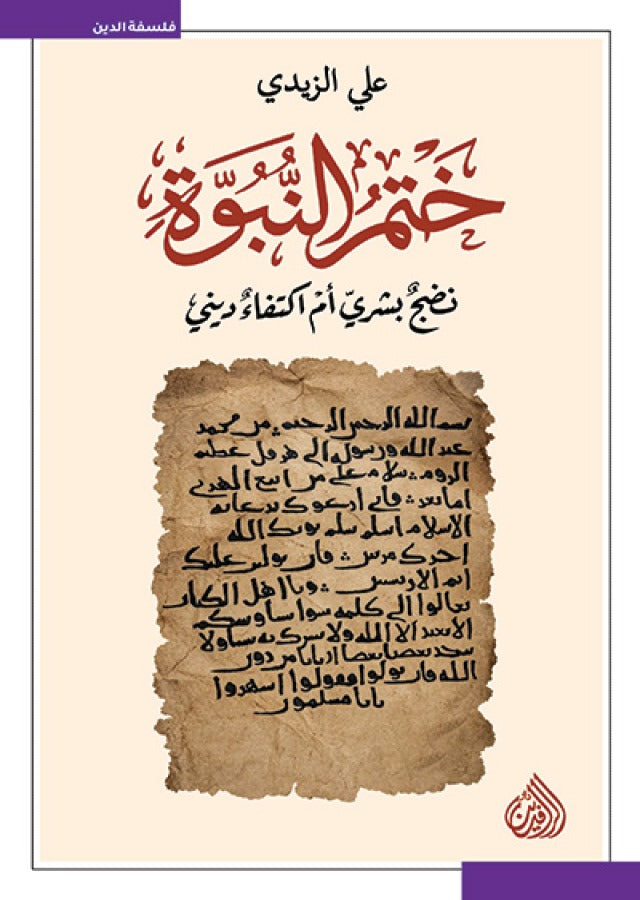 فلسفة الدين
علي الزيدي
خَتمُ النُّبُوَّةِ
نضجٌ بشريّ أمْ اكتفاءٌ ديني
بسم الله الرحمن الرحيم من محمد
عبد الله ورسوله الى هرقل عظيم
الروم سلام على من اتبع الهدى
اما بعد فانى ادعوك بدعاية
الاسلام اسلم تسلم يوتك الله
اجرك مرتين فان توليت فعليك
اثم الاريسيين ويا اهل الكتاب
تعالوا الى كلمة سوا بيننا وبينكم
الا نعبد الا الله ولا نشرك به شيئا ولا
يتخذ بعضنا بعضا اربابا من دون
الله فان تولوا فقولوا اشهدوا
بانا مسلمون
دار الرافدين